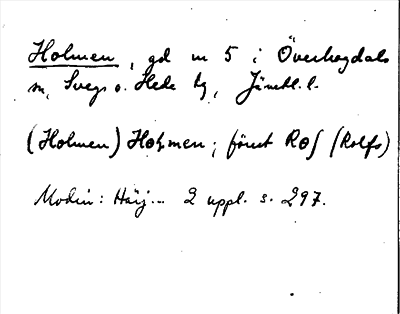 Holmen, gd nr 5 i Överhogdals
sn, Svegs o. Hede tg, Jämtl. l.
(Holmen) Holmen; förut Ros (Rolfs)
Modin: Härj... 2 uppl. s. 297.